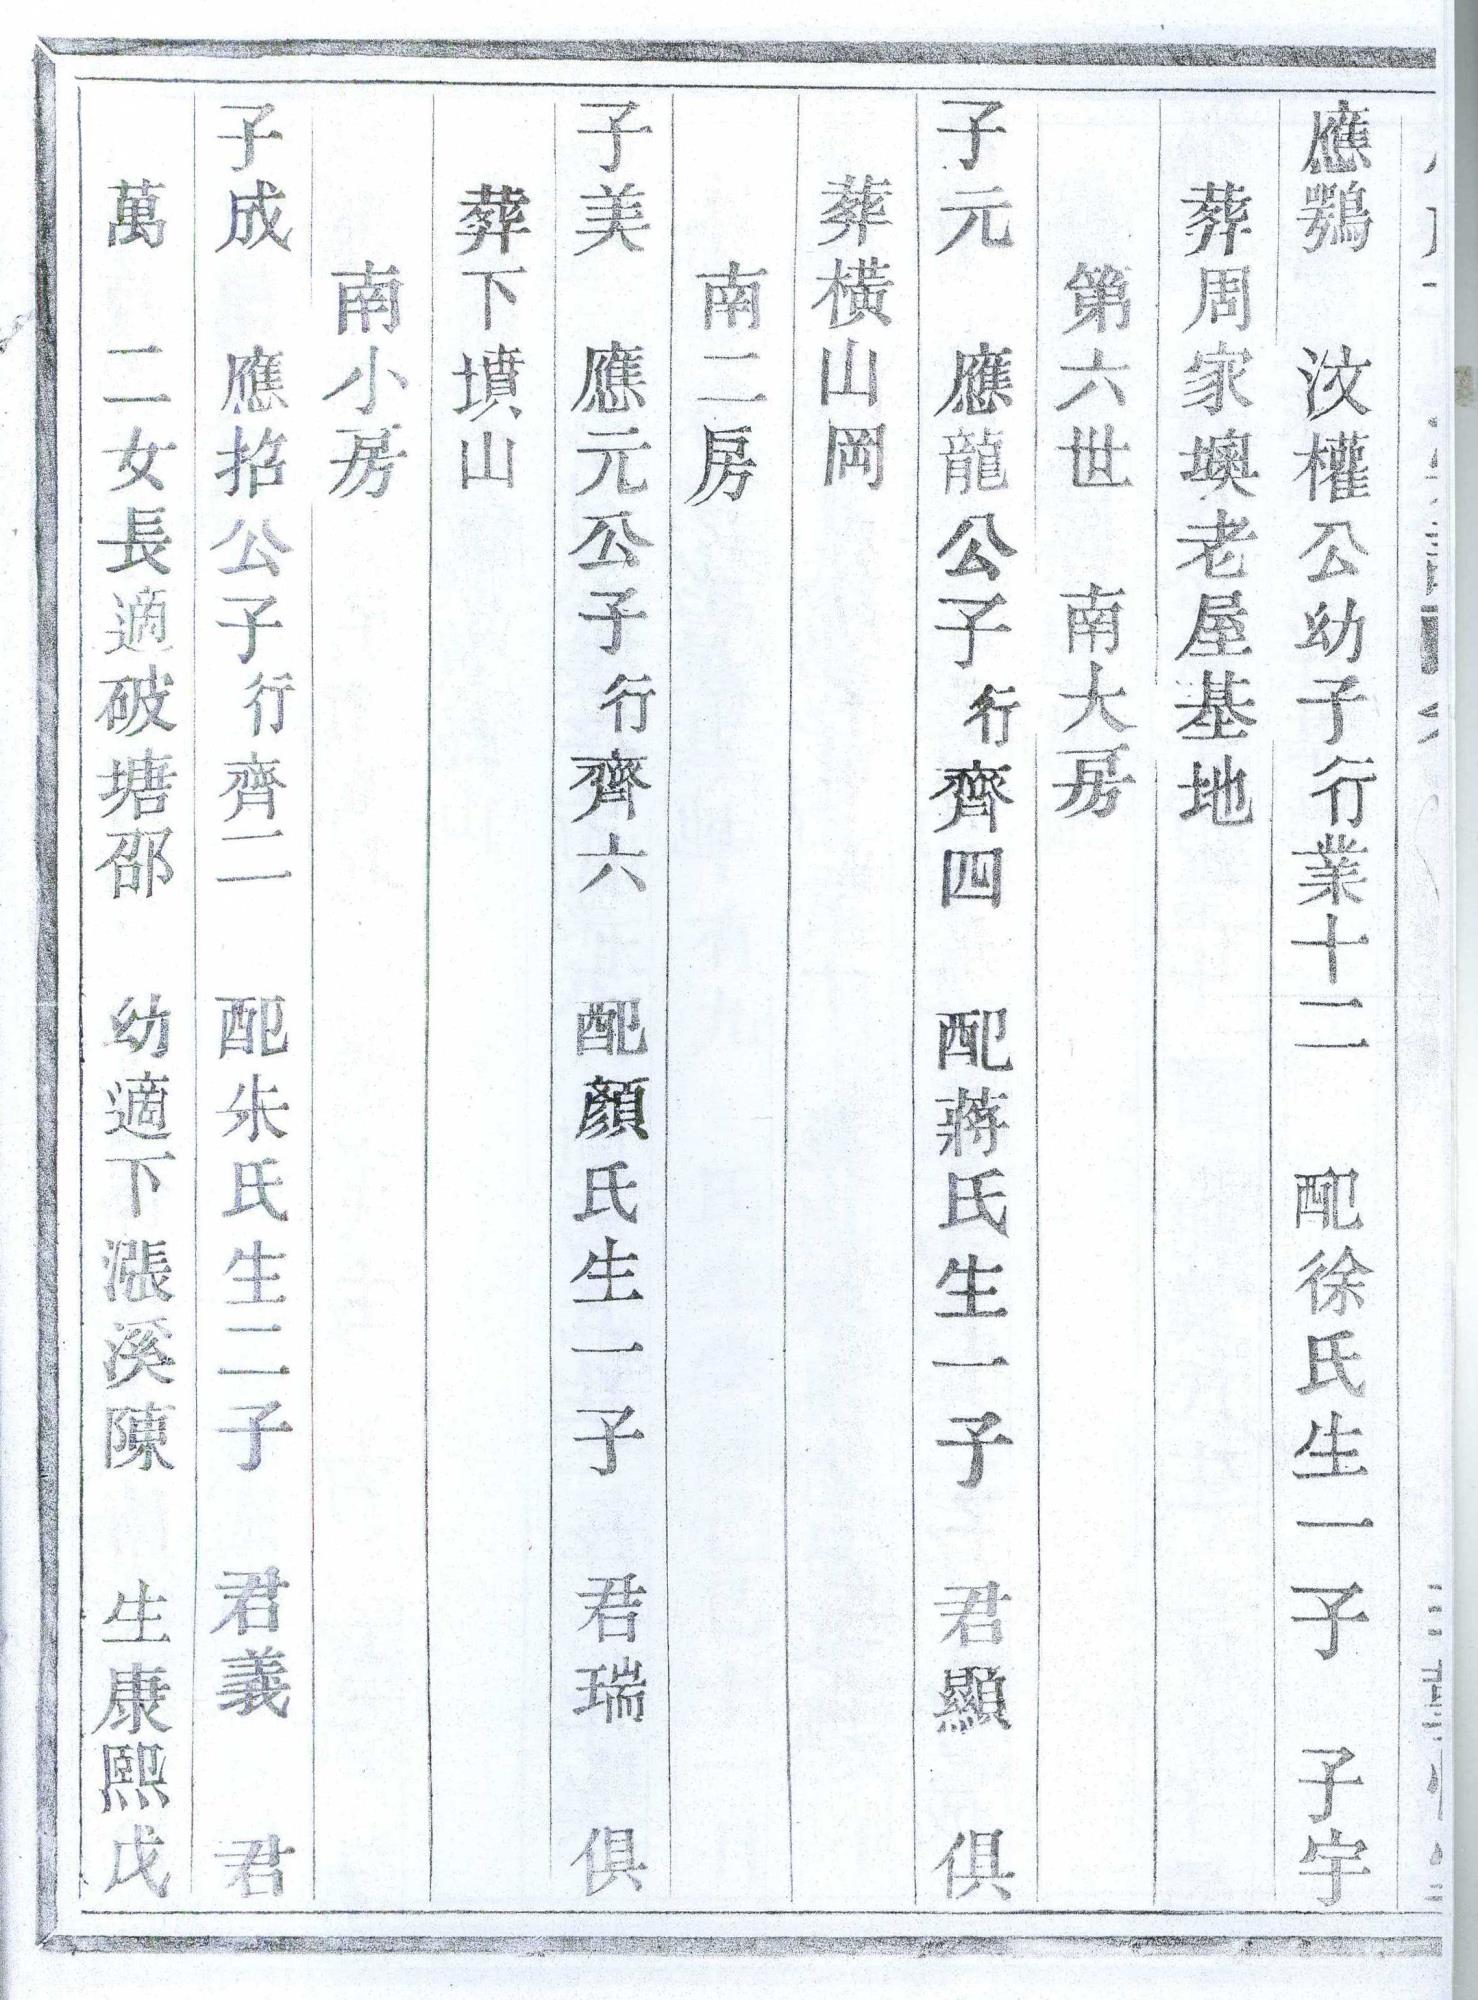 應鶚　汶權公幼子行業十二　配徐氏生一子　子宇
葬周家墺老屋基地
第六世　南大房
子元　應龍公子行齊四　配蔣氏生一子　君顯　俱
葬橫山岡
南二房
子美　應元公子行齊六　配顏氏生一子　君瑞　俱
葬下墳山
南小房
子成　應招公子行齊二　配朱氏生二子　君義　君
萬　二女長適破塘邵　幼適下漲溪陳　生康熙戊